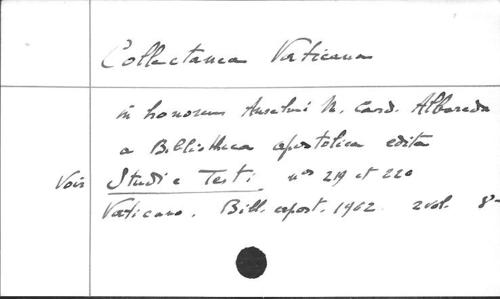 Collectanea Vaticana
in honorem Anselmi M. Card. Albareda
a Bibliotheca apostolica edita
Vois Studi e Testi nos 219 et 220
Vaticano. Bibl. apost. 1962. 2 vol. 8-